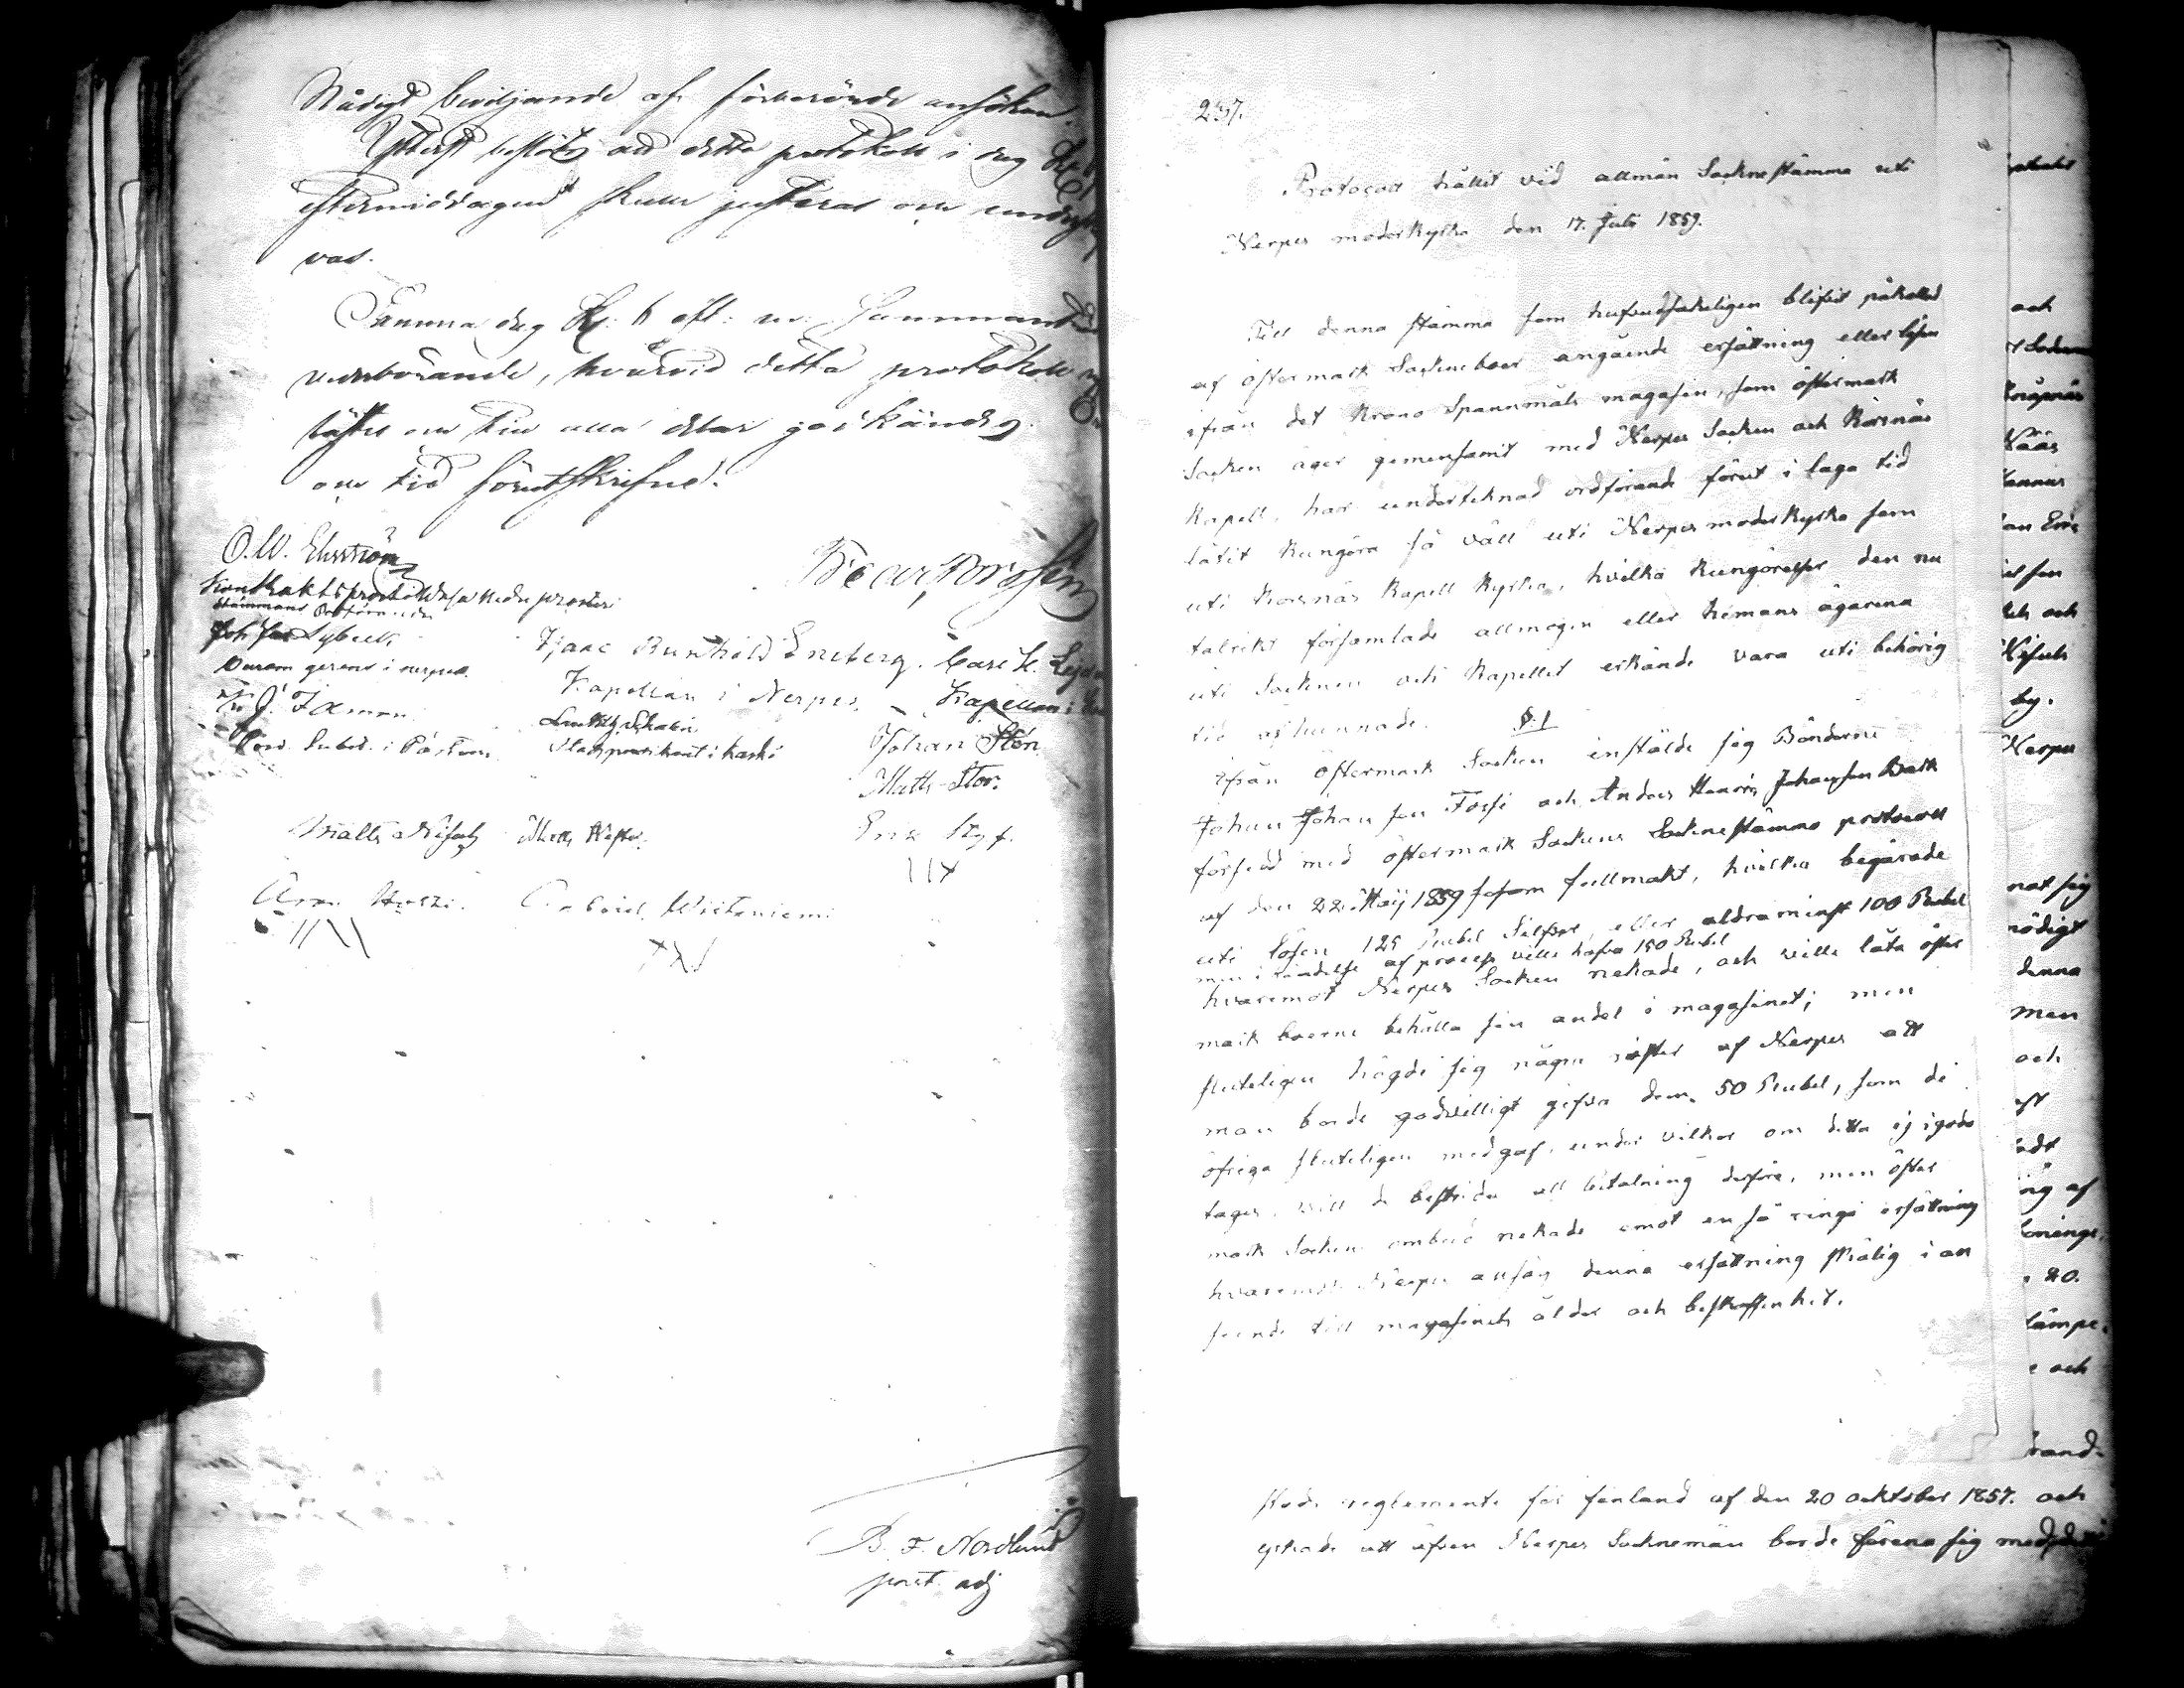 Nådigt beviljande af förberörde ansökan.
Ytterst beslöts att detta protokoll i dag
eftermiddagen skulle justeras och underskrif
vas.
Samma dag Kl. 6 eft: m: sammanträdde
vederbörande, hvarvid detta protokoll
lästes och till alla delar godkändes
om tid förutskrifne.
O. W. Ehrström
Kontraktsprost
Stämmans Ordförande
Oscar
Joh. Jac. Sybeck.
Isaac Reinhold Eneberg. Carl
Kapellan i Nerpes. Kapellan i
J. Forsman.
Johan Sten
Matts Stor.
Matts Nisula Matts
Erik Styf.
Gabriel
B. F. Nordlund
past. adj
237.
Protocoll hållit vid allmän Sockne stämma uti
Nerpes moderkyrka den 17. Juli 1859.
Till denna stämma som hufvudsakeligen blifvit påkallad
af östermark Sockneboer angående ersättning eller lösen
ifrån det Krono Spannmåls magasin, som östermark
Socken äger gemensamt med Nerpes Socken och Korsnäs
Kapell, har undertecknad ordförande förut i laga tid
låtit kungöra så väll uti Nerpes moderkyrka som
uti Korsnäs Kapell kyrka, hvilka kungörelser den nu
talrikt församlade allmogen eller hemmans ägarena
uti Socknen och Kapellet erkände vara uti behörig
tid afkunnade. §. 1
ifrån östermark Socken instälde sig Bönderne
Johan Johansson Forss och Anders Henric Johansson Back
försedd med östermark Sockens Sockne stämmo protocoll
af den 22 Maij 1859 såsom fullmakt, hvilka begärade
uti lösen 125 Rubel Silfver, eller aldraminst 100 Rubel
men i händelse af process ville hafva 150 Rubel
hvaremot Nerpes Socken nekade, och ville låta öster
mark boerne behålla sin andel i magasinet; men
sluteligen högde sig några röster af Nerpes att
man borde godvilligt gifva dem 50 Rubel, som de
öfriga sluteligen medgaf, under vilkor om detta ej igodo
tages, vill de bestrida all betalning derföre, men öster
mark Sockens ombud nekade emot en så ringa ersättning
hvaremot Nerpes ansåg denna ersättning skälig i an
seende till magasinets ålder och beskaffenhet.
stads reglemente för finland af den 20 october 1857. och
yrkade att äfven Nerpes Socknemän borde förena sig med
och
Näs
by.
Nerpes
nat sig
nödigt
denna
men
och
ng af
20.
och
brand-